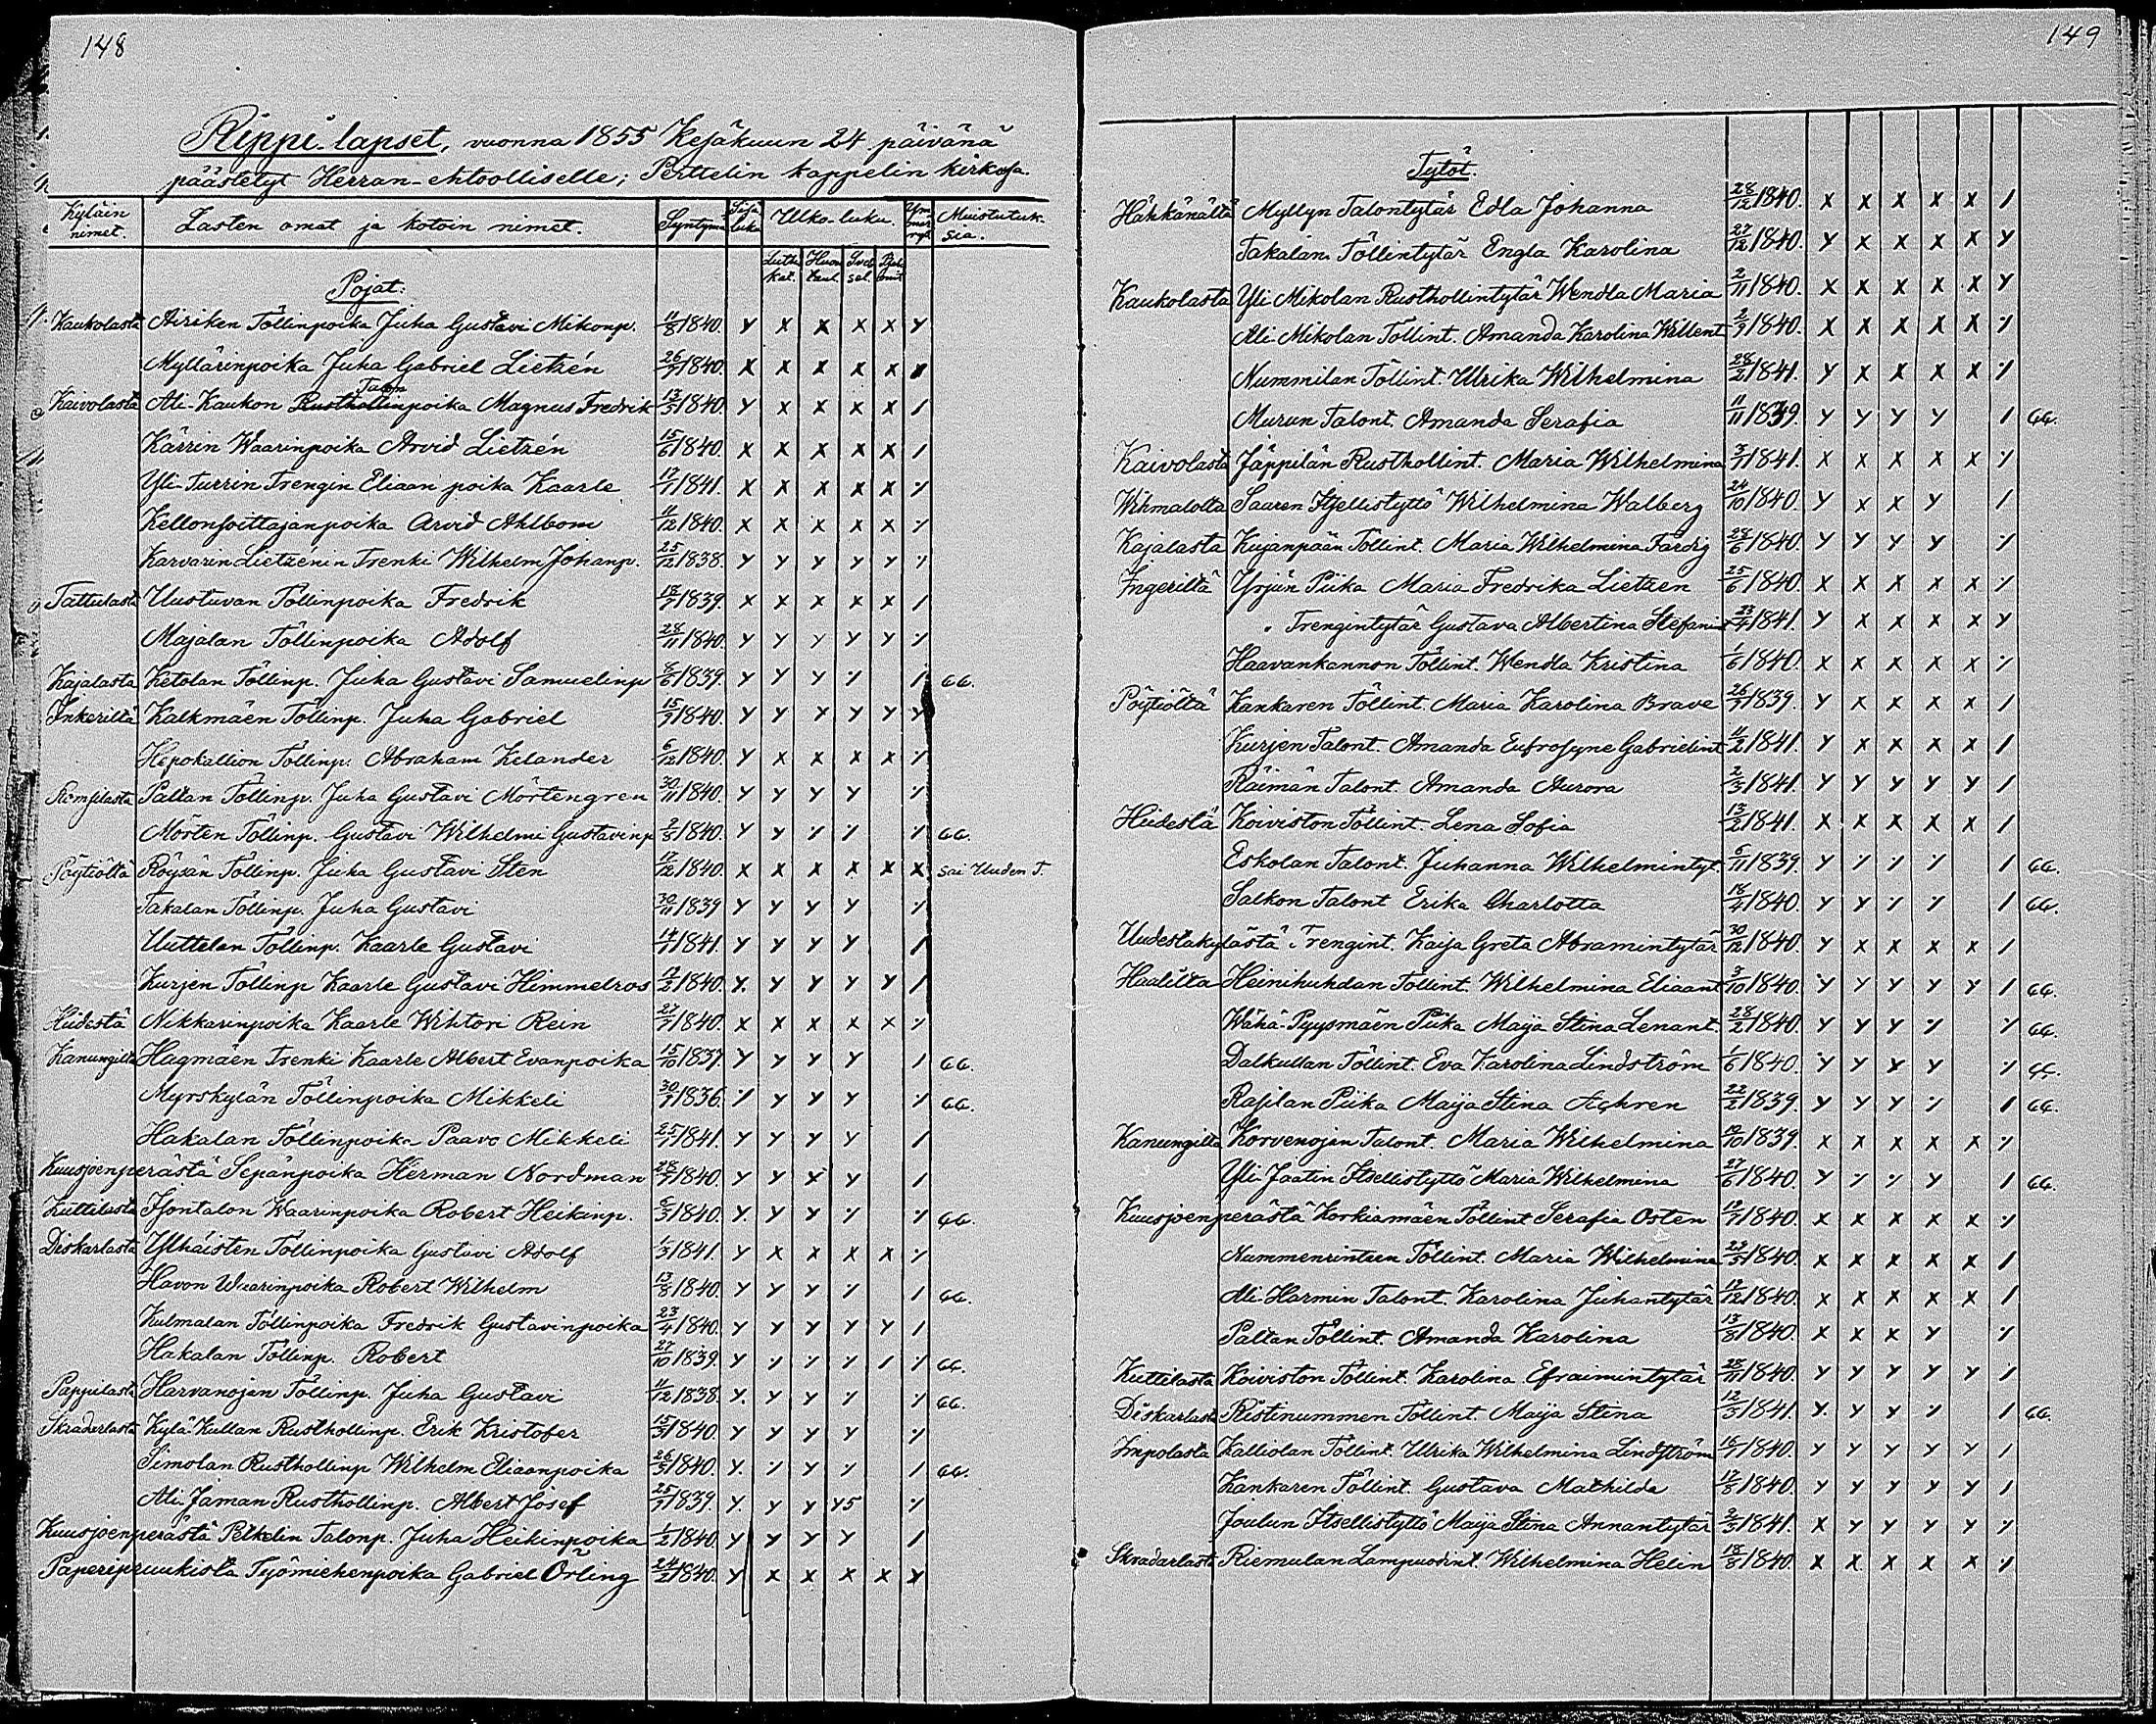 148
Rippi-lapset, vuonna 1855 Kesäkuun 24 päivänä
päästetyt Herran-ehtoolliselle; Perttelin kappelin kirkosa.
Kyläin nimet. Lasten omat ja kotoin nimet. Syntymä Sisä luku Ulko-luku. Ymmärrys Muistutuksia.
Luth. kat. Huon. taul. Svebsel.
Pojat:
Kaukolasta Airiken Töllinpoika Juha Gustavi Mikonp. 11/8 1840. y x x x x y
Myllärinpoika Juha Gabriel Lietzén 26/7 1840. x x x x x x
Talon
Kaivolasta Ali-Kaukon Rusthollinpoika Magnus Fredrik 13/5 1840. y x x x x /
Kärrin Waarinpoika Arvid Lietzén 15/6 1840. x x x x x /
Yli-Turrin Trengin Eliaan poika Kaarle 17/1 1841. x x x x x ⁒
Kellonsoittajanpoika Arvid Ahlbom 11/12 1840. x x x x x ⁒
Karvarin Lietzénin Trenki Wilhelm Johanp. 25/12 1838. y y y y y ⁒
Tattulasta Uustuvan Töllinpoika Fredrik 18/7 1839. x x x x x /
Majalan Töllinpoika Adolf 28/11 1840. y y y y y ⁒
Kajalasta Ketolan Töllinp. Juha Gustavi Samuelinp 8/6 1839. y y y ⁒ / 66.
Inkeriltä Kalkmäen Töllinp. Juha Gabriel 15/9 1840. y y x y y y
Hepokallion Töllinp. Abraham Kelander 6/12 1840. y x x x x ⁒
Romsilasta Paltan Töllinp. Juha Gustavi Mörtengren 30/11 1840. y y y y ⁒
Mörten Töllinp. Gustavi Wilhelmi Gustavinp 9/5 1840. y y ⁒ ⁒ ⁒ 66.
Pöytiöltä Röysän Töllinp. Juha Gustavi Sten 17/12 1840. x x x x x x sai Uuden T.
Takalan Töllinp. Juha Gustavi 30/11 1839 y y y y ⁒
Uuttelan Töllinp. Kaarle Gustavi 14/1 1841. y y y y /
Kurjen Töllinp Kaarle Gustavi Himmelros 12/2 1840. y. y y y y /
Hiidestä Nikkarinpoika Kaarle Wihtori Rein 27/7 1840. x x x x x ⁒
Kanungilta Hagmäen Trenki Kaarle Albert Evanpoika 15/10 1837. y y y y / 66.
Myrskylän Töllinpoika Mikkeli 30/7 1836. ⁒ y y y ⁒ 66.
Hakalan Töllinpoika Paavo Mikkeli 25/1 1841. y y y y /
Kuusjoenperästä Sepänpoika Herman Nordman 28/7 1840. y y x y /
Kuttilasta Isontalon Waarinpoika Robert Heikinp. 5/3 1840. y. y y ⁒ ⁒ 66.
Diskarlasta Ylhäisten Töllinpoika Gustavi Adolf 1/3 1841. y x x x x ⁒
Havon Waarinpoika Robert Wilhelm 13/8 1840. y y y ⁒ / 66.
Kulmalan Töllinpoika Fredrik Gustavinpoika 23/4 1840. y y y y y /
Hakalan Töllinp. Robert 27/10 1839. y ⁒ ⁒ ⁒ / ⁒ 66.
Pappilasta Harvanojan Töllinp. Juha Gustavi 11/12 1838. y. y y ⁒ ⁒ 66.
Skradarlasta Kylä-Kullan Rusthollinp. Erik Kristofer 15/3 1840. y y y y ⁒
Simolan Rusthollinp Wilhelm Eliaanpoika 26/5 1840. y. ⁒ y ⁒ / 66.
Ali-Jaman Rusthollinp. Albert Josef 25/7 1839. y. y y y5 ⁒
Kuusjoenperästä Pirkelin Talonp. Juha Heikinpoika 1/2 1840. y y y y /
Paperipruukista Työmiehenpoika Gabriel Örling 24/2 1840. y x x x x x
149
Tytöt.
Hähkänältä Myllyn Talontytär Edla Johanna 28/12 1840. x x x x x /
Takalan Töllintytär Engla Karolina 27/12 1840. y x x x x y
Kaukolasta Yli Mikolan Rusthollintytär Wendla Maria 2/11 1840. x x x x x y
Ali-Mikolan Töllint. Amanda Karolina Willent 2/9 1840. x x x x x ⁒
Nummilan Töllint. Ulrika Wilhelmina 28/2 1841. y x x x x ⁒
Murun Talont. Amanda Serafia 11/11 1839. y y y y / 66.
Kaivolasta Jäppilän Rusthollint. Maria Wilhelmina 3/1 1841. x x x x x ⁒
Wihmalolta Saaren Itsellistyttö Wilhelmina Walberg 24/10 1840. y x x y /
Kajalasta Kujanpään Töllint. Maria Wilhelmina Färdig 28/6 1840. y y y y ⁒
Ingeriltä Yrjän Piika Maria Fredrika Lietzen 25/6 1840. x x x x x ⁒
" Trengintytär Gustava Albertina Stefanint 23/4 1841. y x x x x y
Haavankannon Töllint. Wendla Kristina 1/6 1840. x x x x x ⁒
Pöytiöltä Kankaren Töllint. Maria Karolina Brave 26/9 1839. y x x x x /
Kurjen Talont. Amanda Eufrosyne Gabrielint 11/2 1841. y x x x x /
Räimän Talont. Amanda Aurora 2/3 1841. y y y y y /
Hiidestä Koiviston Töllint. Lena Sofia 13/2 1841. x x x x x /
Eskolan Talont. Juhanna Wilhelmintyt. 6/11 1839. y ⁒ ⁒ ⁒ / 66.
Salkon Talont Erika Charlotta 18/4 1840. y y ⁒ ⁒ / 66.
Uudestakylästä Trengint. Kaija Greta Abramintytär 30/12 1840. y x x x x /
Haalilta Heinihuhdan Töllint. Wilhelmina Eliaant 3/10 1840. y y y y y / 66.
Wähä-Pyysmäen Piika Maija Stina Lenant. 28/2 1840. y y y ⁒ ⁒ 66.
Dalkullan Töllint. Eva Karolina Lindström 1/6 1840. y y y y ⁒ 66.
Rajilan Piika Maija Stina 22/2 1839. y y y ⁒ / 66.
Kanungilta Korvenojan Talont. Maria Wilhelmina 10/10 1839. x x x x x ⁒
Yli-Jaatin Itsellistyttö Maria Wilhelmina 27/6 1840. y ⁒ ⁒ y / 66.
Kuusjoenperästä Korkiamäen Töllint Serafia Osten 12/7 1840. x x x x x ⁒
Nummenrintsen Töllint. Maria Wilhelmina 29/5 1840. x x x x x /
Ali-Harmin Talont. Karolina Juhantytär 12/12 1840. x x x x x /
Paltan Töllint. Amanda Karolina 13/8 1840. x x x y ⁒
Kuttilasta Koiviston Töllint. Karolina Efraimintytär 28/11 1840. y y y y y /
Diskarlasta Ristinummen Töllint. Maija Stina 12/3 1841. y. y y ⁒ / 66.
Impolasta Kalliolan Töllint. Ulrika Wilhelmina Lindström 15/7 1840. y y y y y /
Kankaren Töllint. Gustava Mathilda 12/8 1840. y y y y y /
Joulun Itsellistyttö Maija Stina Annantytär 9/3 1841. x y y y y ⁒
Skradarlasta Riemulan Lampuodint. Wilhelmina Helin 18/8 1840. x x x x x ⁒